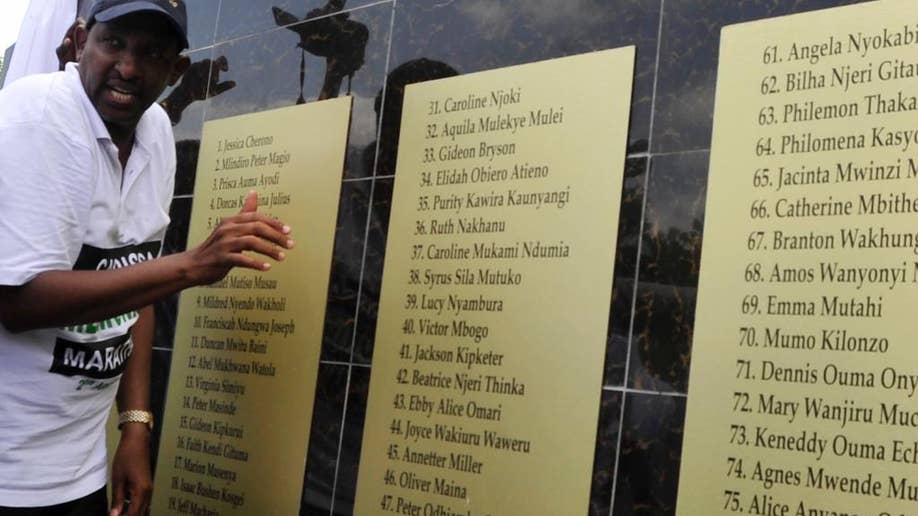 GARISSA
MARATHON
1. Jessica Cherono
2. Mlindiro Peter Magio
3. Prisca Auma Ayodi
4. Dorcas Julius
5.
Matiso Musau
9. Mildred Nyendo Wakholi
10. Franciscah Ndungwa Joseph
11. Duncan Mwita Baini
12. Abel Mukhwana Watola
13. Virginia Simiyu
14. Peter Masinde
15. Gideon Kipkurui
16. Faith Kendi Gituma
17. Marion Musenya
18. Isaac Bushen Kosgei
19. Jeff
31. Caroline Njoki
32. Aquila Mulekye Mulei
33. Gideon Bryson
34. Elidah Obiero Atieno
35. Purity Kawira Kaunyangi
36. Ruth Nakhanu
37. Caroline Mukami Ndumia
38. Syrus Sila Mutuko
39. Lucy Nyambura
40. Victor Mbogo
41. Jackson Kipketer
42. Beatrice Njeri Thinka
43. Ebby Alice Omari
44. Joyce Wakiuru Waweru
45. Annetter Miller
46. Oliver Maina
47. Peter
61. Angela Nyokabi
62. Bilha Njeri Gitau
63. Philemon Thaka
64. Philomena Kasyo
65. Jacinta Mwinzi M
66. Catherine Mbithe
67. Branton Wakhung
68. Amos Wanyonyi
69. Emma Mutahi
70. Mumo Kilonzo
71. Dennis Ouma Ony
72. Mary Wanjiru Muc
73. Keneddy Ouma Ech
74. Agnes Mwende Mu
75. Alice Anyang